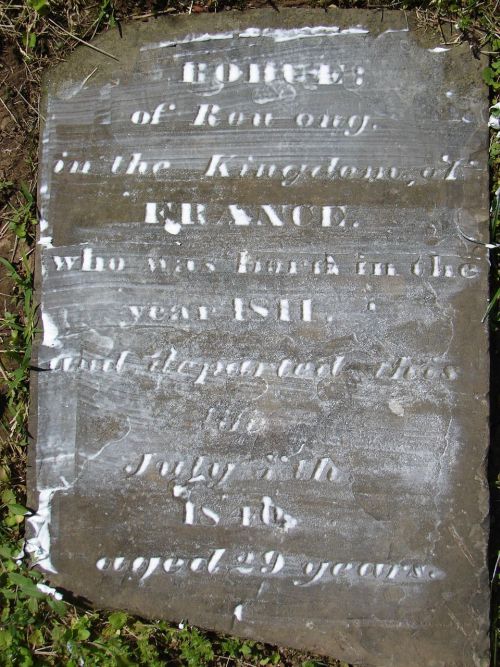 of Rou ong.
in the Kingdom, of
FRANCE.
who was born in the
year 1811.
and departed this
life
July th
1840.
aged 29 years.